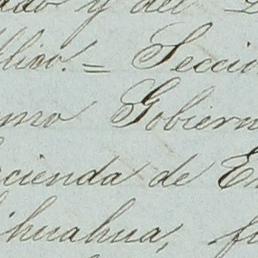 ado y del
blico. = Secci
smo Gobiern
acienda de E
Chihuahua, f